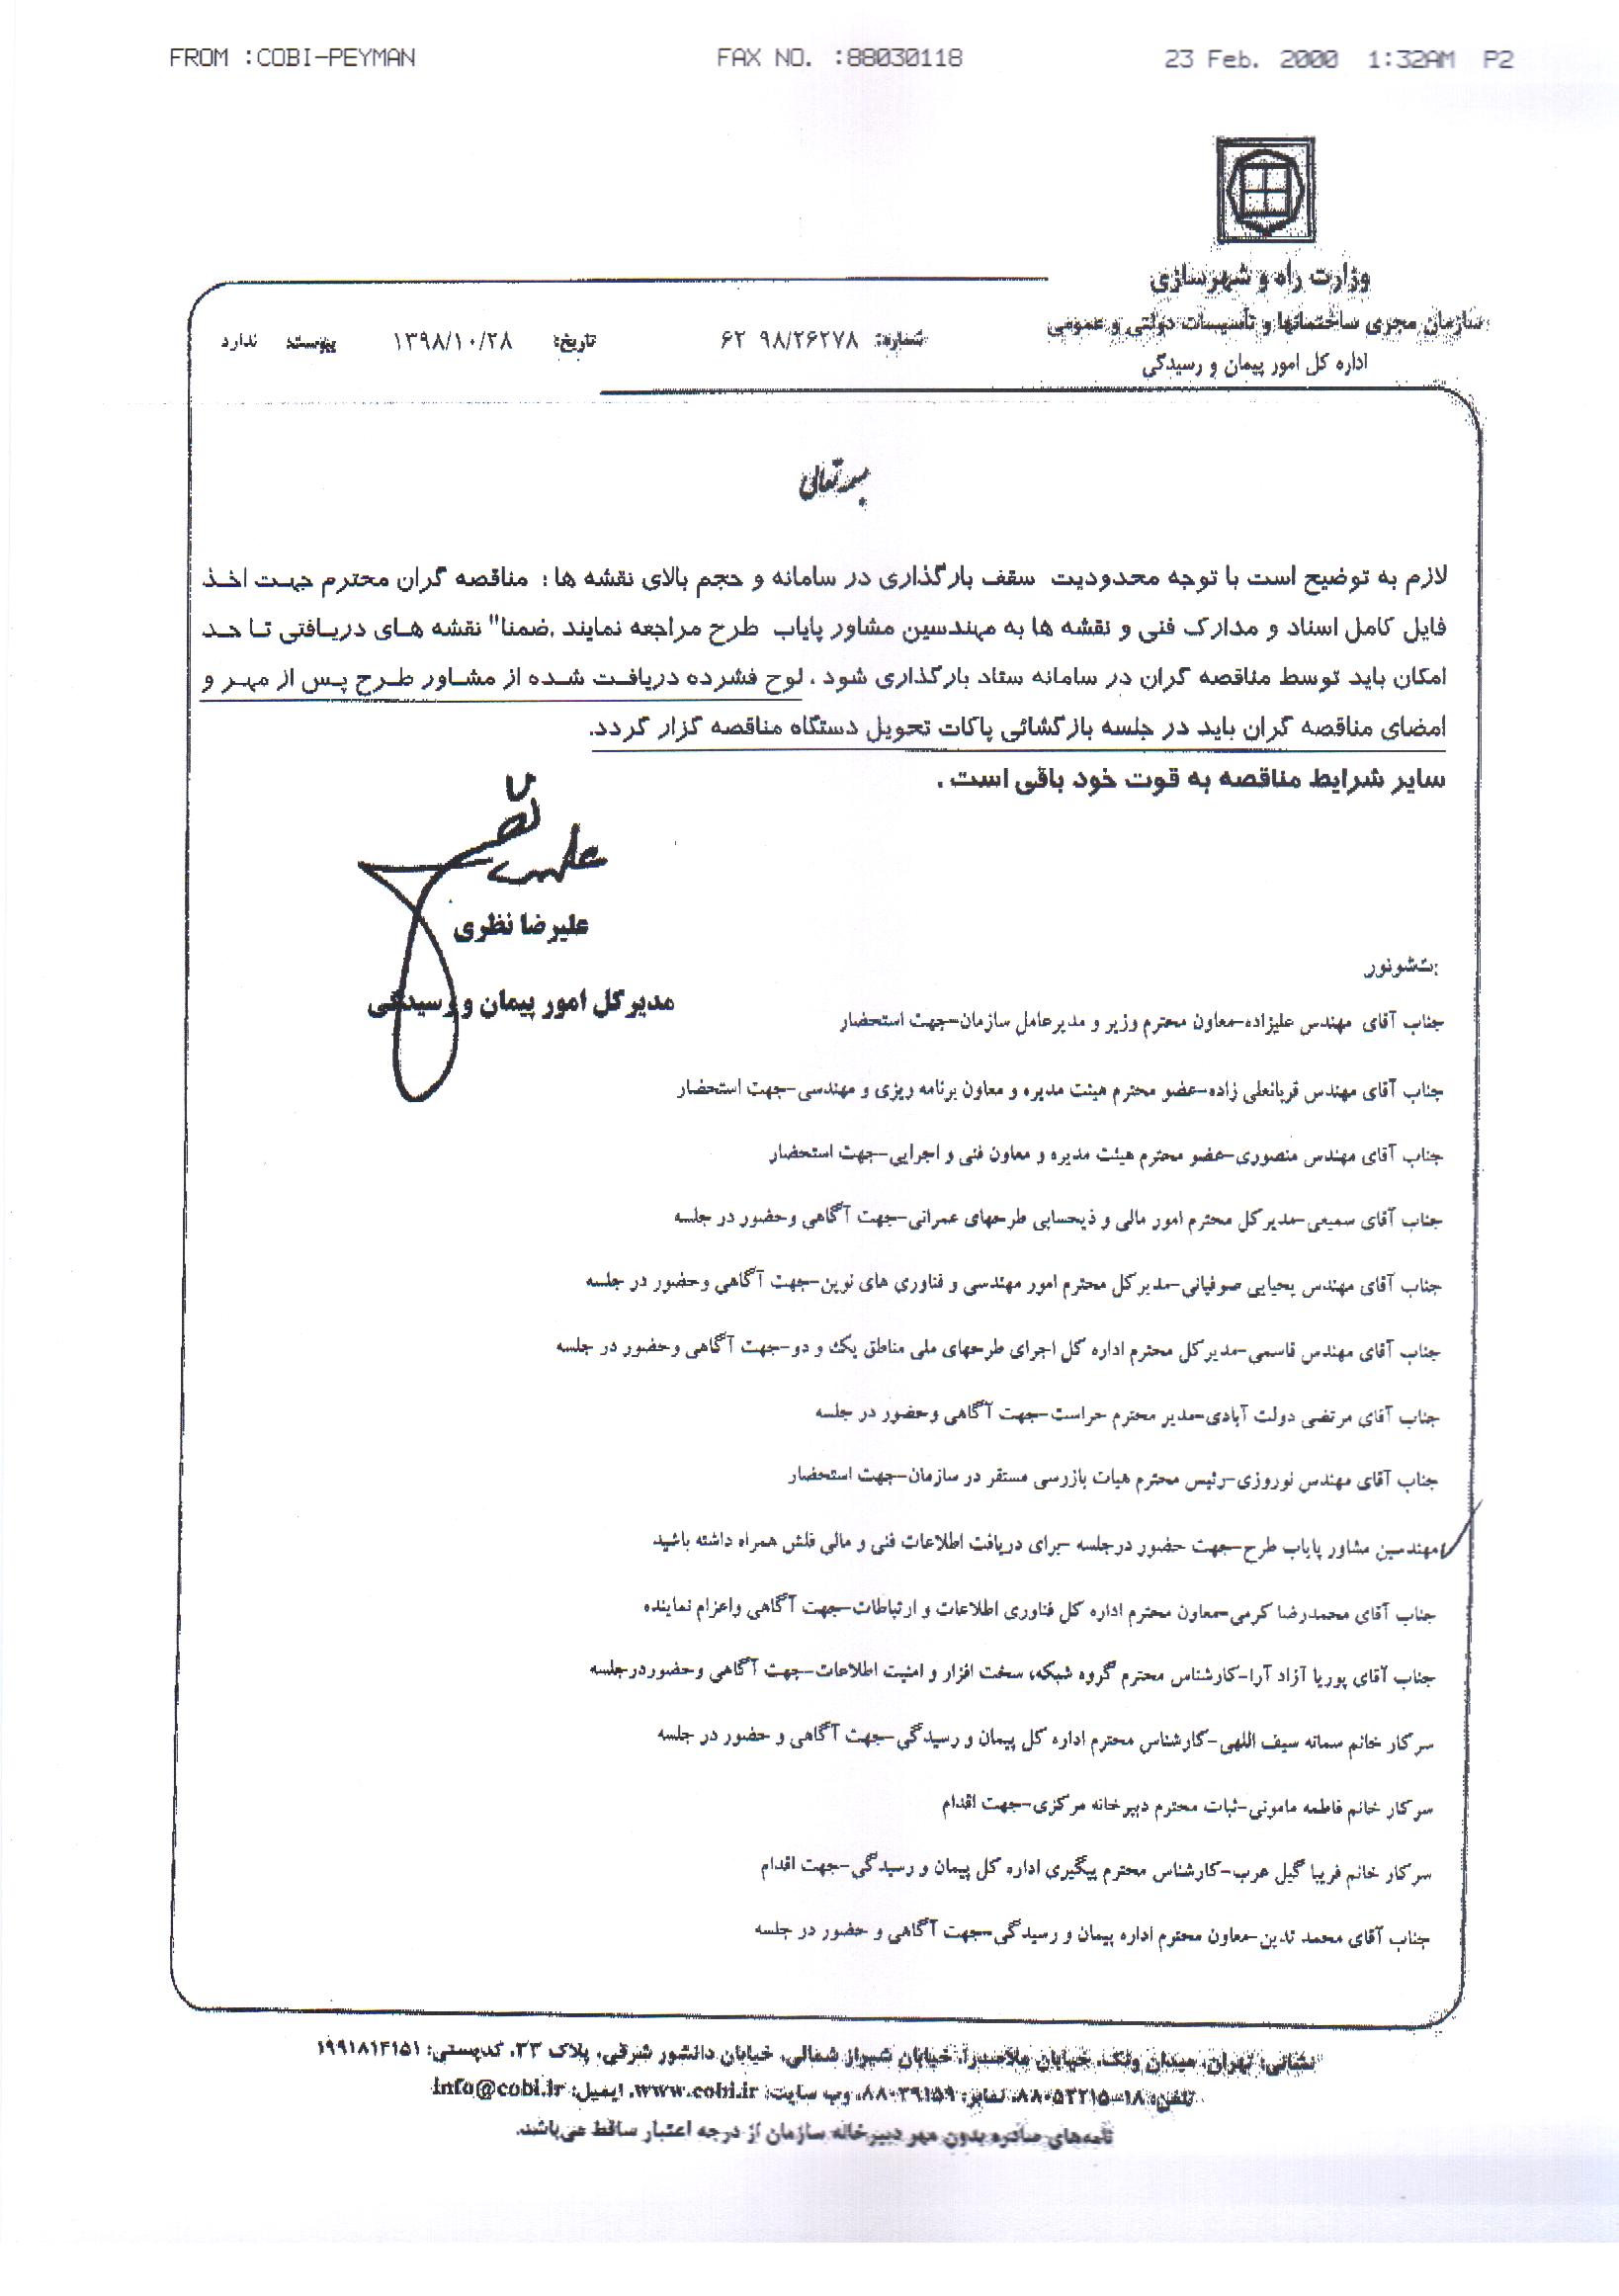 FROM :COBI-PEYMAN FAX NO. :88030118 23 Feb. 2000 1:32AM P2
وزارت راه و شهرسازی
سازمان مجری ساختمانها و تأسیسات دولتی و عمومی
اداره کل امور پیمان و رسیدگی
شماره: ۹۸/۲۶۲۷۸ ۶۲ تاریخ: ۱۳۹۸/۱۰/۲۸ پیوست: ندارد
بسمه تعالی
لازم به توضیح است با توجه محدودیت سقف بارگذاری در سامانه و حجم بالای نقشه ها ؛ مناقصه گران محترم جهت اخذ
فایل کامل اسناد و مدارک فنی و نقشه ها به مهندسین مشاور پایاب طرح مراجعه نمایند .ضمنا" نقشه های دریافتی تا حد
امکان باید توسط مناقصه گران در سامانه ستاد بارگذاری شود ، لوح فشرده دریافت شده از مشاور طرح پس از مهر و
امضای مناقصه گران باید در جلسه بازگشائی پاکات تحویل دستگاه مناقصه گزار گردد.
سایر شرایط مناقصه به قوت خود باقی است .
علیرضا نظری
مدیرکل امور پیمان و رسیدگی
جناب آقای مهندس علیزاده-معاون محترم وزیر و مدیرعامل سازمان-جهت استحضار
جناب آقای مهندس قربانعلی زاده-عضو محترم هیئت مدیره و معاون برنامه ریزی و مهندسی-جهت استحضار
جناب آقای مهندس منصوری-عضو محترم هیئت مدیره و معاون فنی و اجرایی-جهت استحضار
جناب آقای سمیعی-مدیرکل محترم امور مالی و ذیحسابی طرحهای عمرانی-جهت آگاهی وحضور در جلسه
جناب آقای مهندس یحیایی صوفیانی-مدیرکل محترم امور مهندسی و فناوری های نوین-جهت آگاهی وحضور در جلسه
جناب آقای مهندس قاسمی-مدیرکل محترم اداره کل اجرای طرحهای ملی مناطق یک و دو-جهت آگاهی وحضور در جلسه
جناب آقای مرتضی دولت آبادی-مدیر محترم حراست-جهت آگاهی وحضور در جلسه
جناب آقای مهندس نوروزی-رئیس محترم هیات بازرسی مستقر در سازمان-جهت استحضار
مهندسین مشاور پایاب طرح-جهت حضور درجلسه -برای دریافت اطلاعات فنی و مالی فلش همراه داشته باشید
جناب آقای محمدرضا کرمی-معاون محترم اداره کل فناوری اطلاعات و ارتباطات-جهت آگاهی واعزام نماینده
جناب آقای پوریا آزاد آرا-کارشناس محترم گروه شبکه، سخت افزار و امنیت اطلاعات-جهت آگاهی وحضوردرجلسه
سرکار خانم سمانه سیف اللهی-کارشناس محترم اداره کل پیمان و رسیدگی-جهت آگاهی و حضور در جلسه
سرکار خانم فاطمه مامونی-ثبات محترم دبیرخانه مرکزی-جهت اقدام
سرکار خانم فریبا گیل عرب-کارشناس محترم پیگیری اداره کل پیمان و رسیدگی-جهت اقدام
جناب آقای محمد تدین-معاون محترم اداره پیمان و رسیدگی-جهت آگاهی و حضور در جلسه
نشانی: تهران، میدان ونک، خیابان ملاصدرا، خیابان شیراز شمالی، خیابان دانشور شرقی، پلاک ۲۳، کدپستی: ۱۹۹۱۸۱۴۱۵۱
تلفن: ۱۸-۸۸۰۵۲۲۱۵، نمابر: ۸۸۰۲۹۱۵۹، وب سایت: www.cobi.ir، ایمیل: info@cobi.ir
نامه‌های صادره بدون مهر دبیرخانه سازمان از درجه اعتبار ساقط می‌باشد.